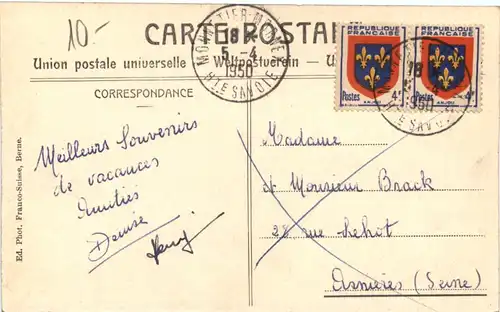 10-
CARTE POSTALE
Union postale universelle — Weltpostverein — U
CORRESPONDANCE
18
5-4
1950
HTE SAVOIE
REPUBLIQUE FRANÇAISE
Postes 4F
ANJOU
REPUBLIQUE FRANÇAISE
Postes 4F
ANJOU
18
1950
HTE SAVOIE
Meilleurs Souvenirs
de vacances
Amitiés
Denise
Madame
et Monsieur Brack
28 rue
Asnières (Seine)
Ed. Phot. Franco-Suisse, Berne.